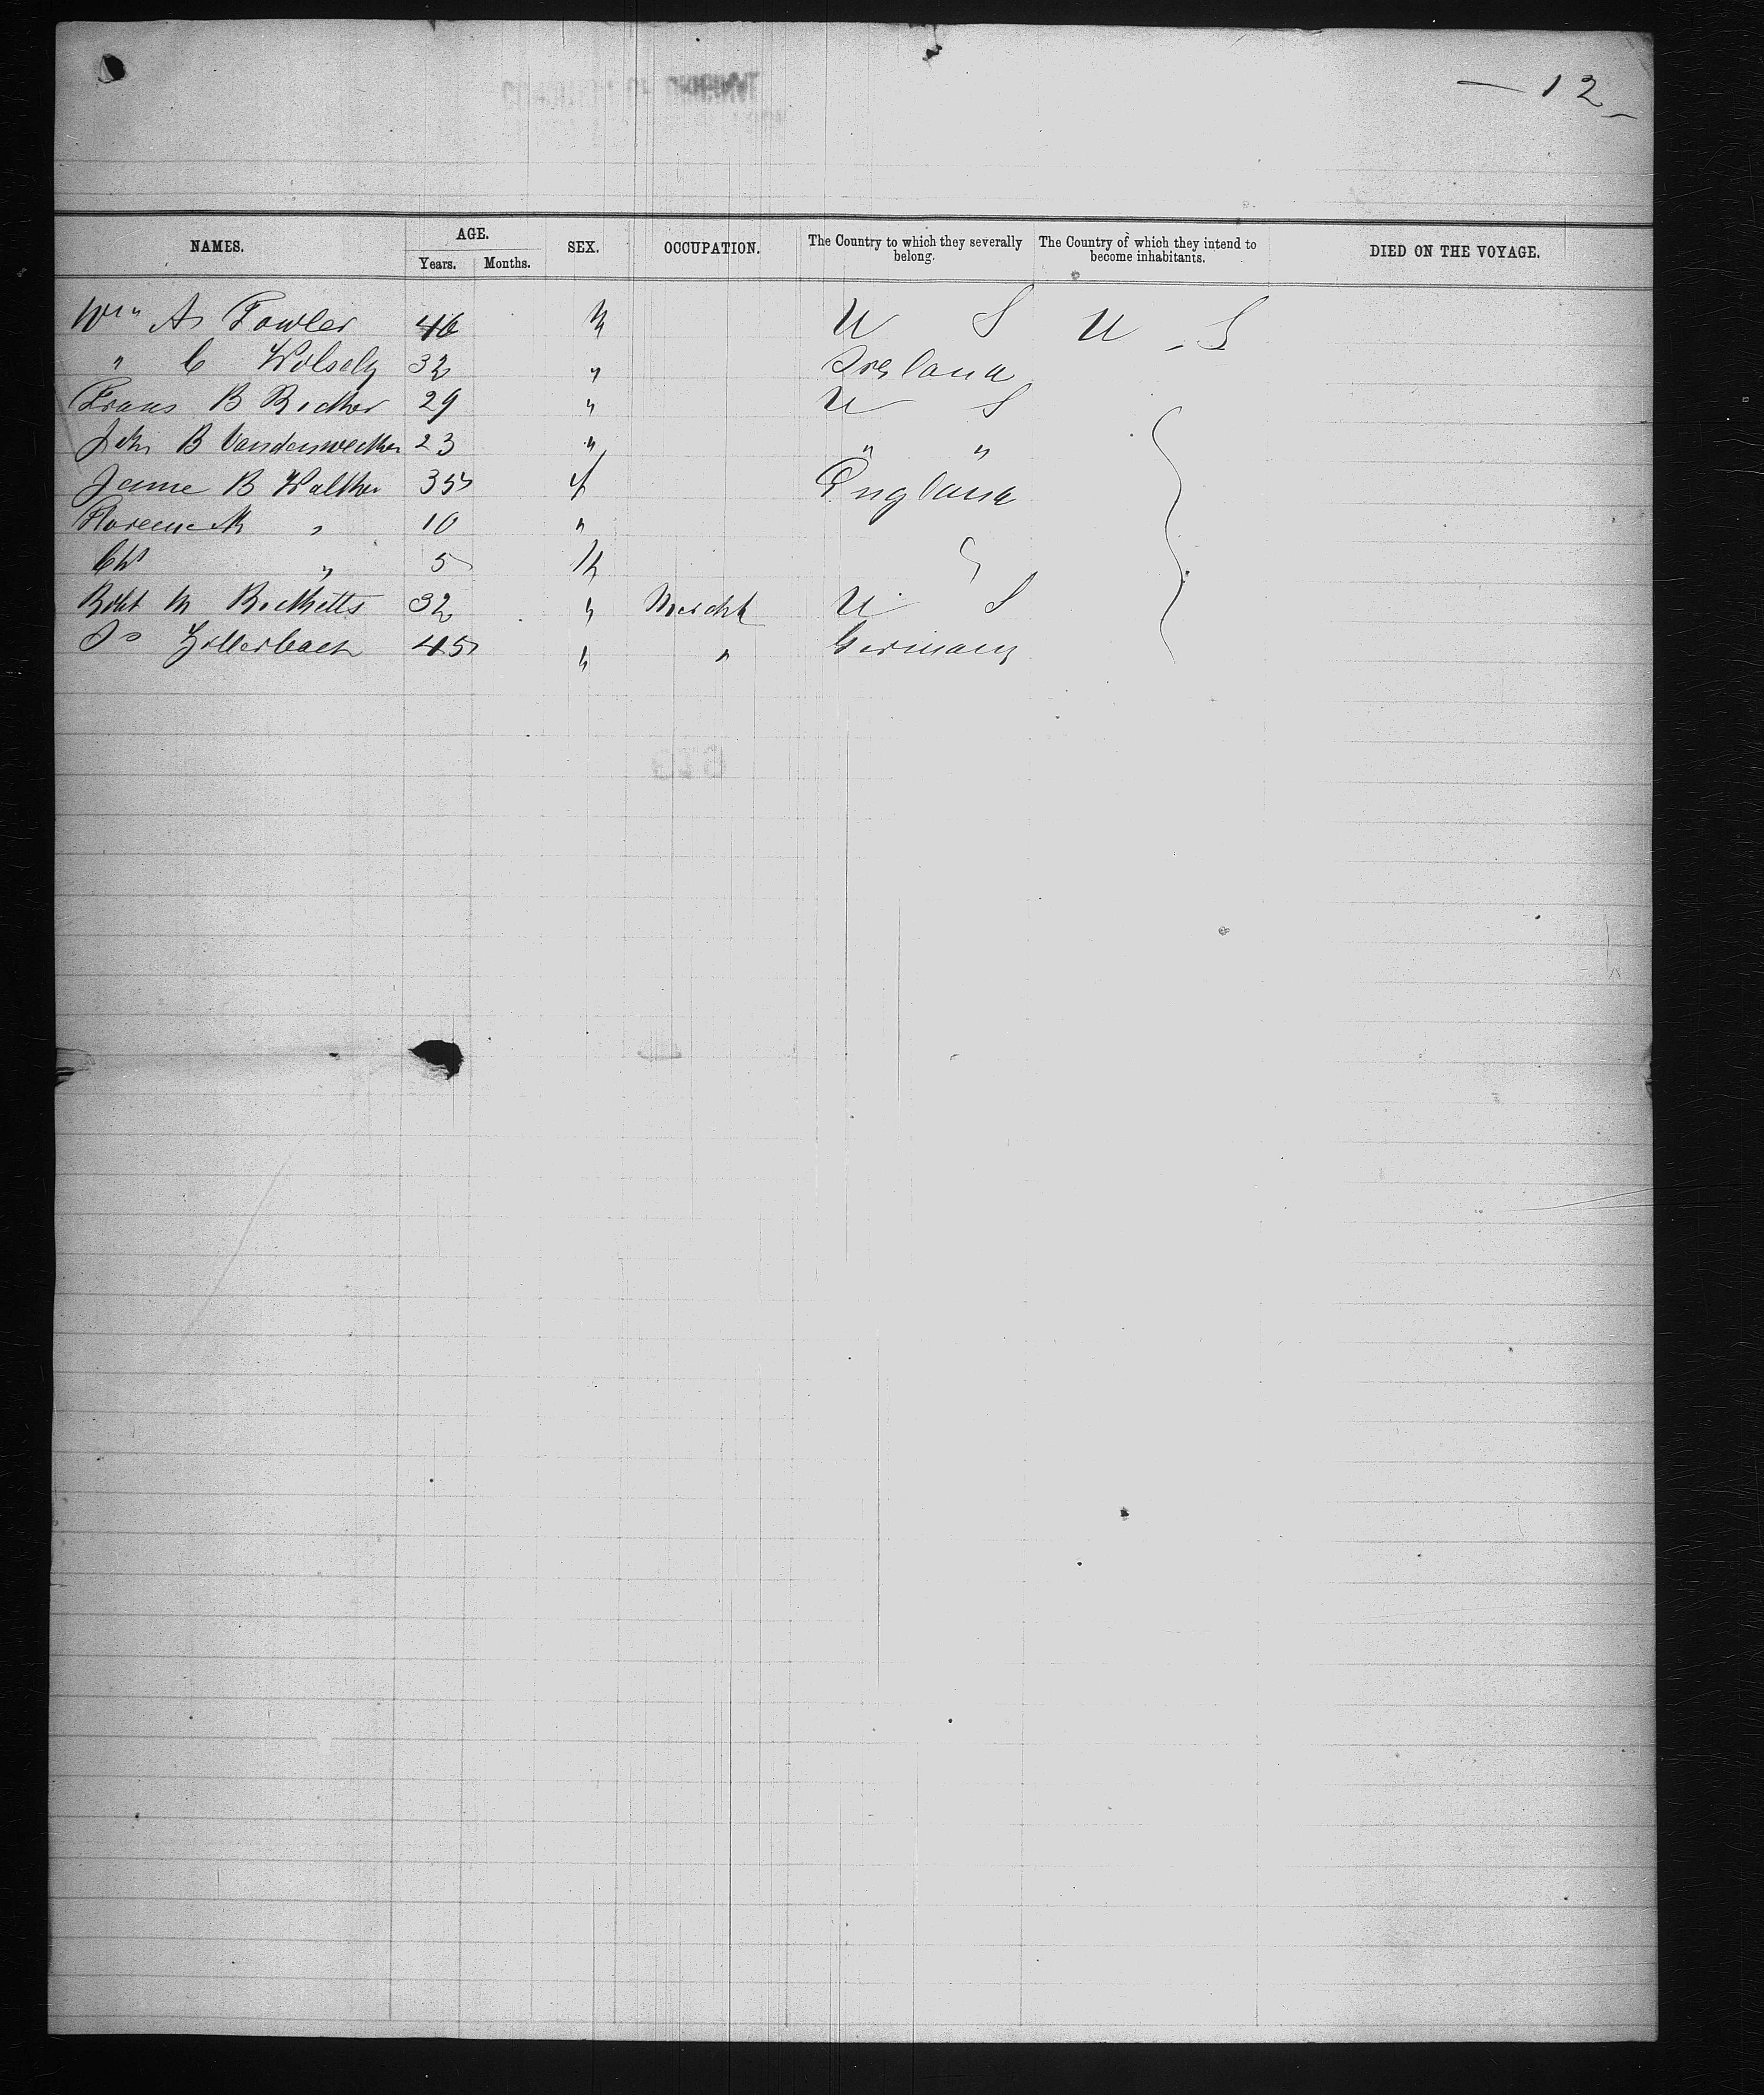 — 12 —
NAMES. AGE. SEX. OCCUPATION. The Country to which they severally belong. The Country of which they intend to become inhabitants. DIED ON THE VOYAGE.
Years. Months.
Wm A Fowler 46 M U S U . S
" C Wolsely 32 " Ireland
Frans B 29 " U S
John B 23 " " "
B Walther 35 f England
Florence M " 10 "
" 5 M "
Robt M Ricketts 32 " Mercht U S
45 " " Germany